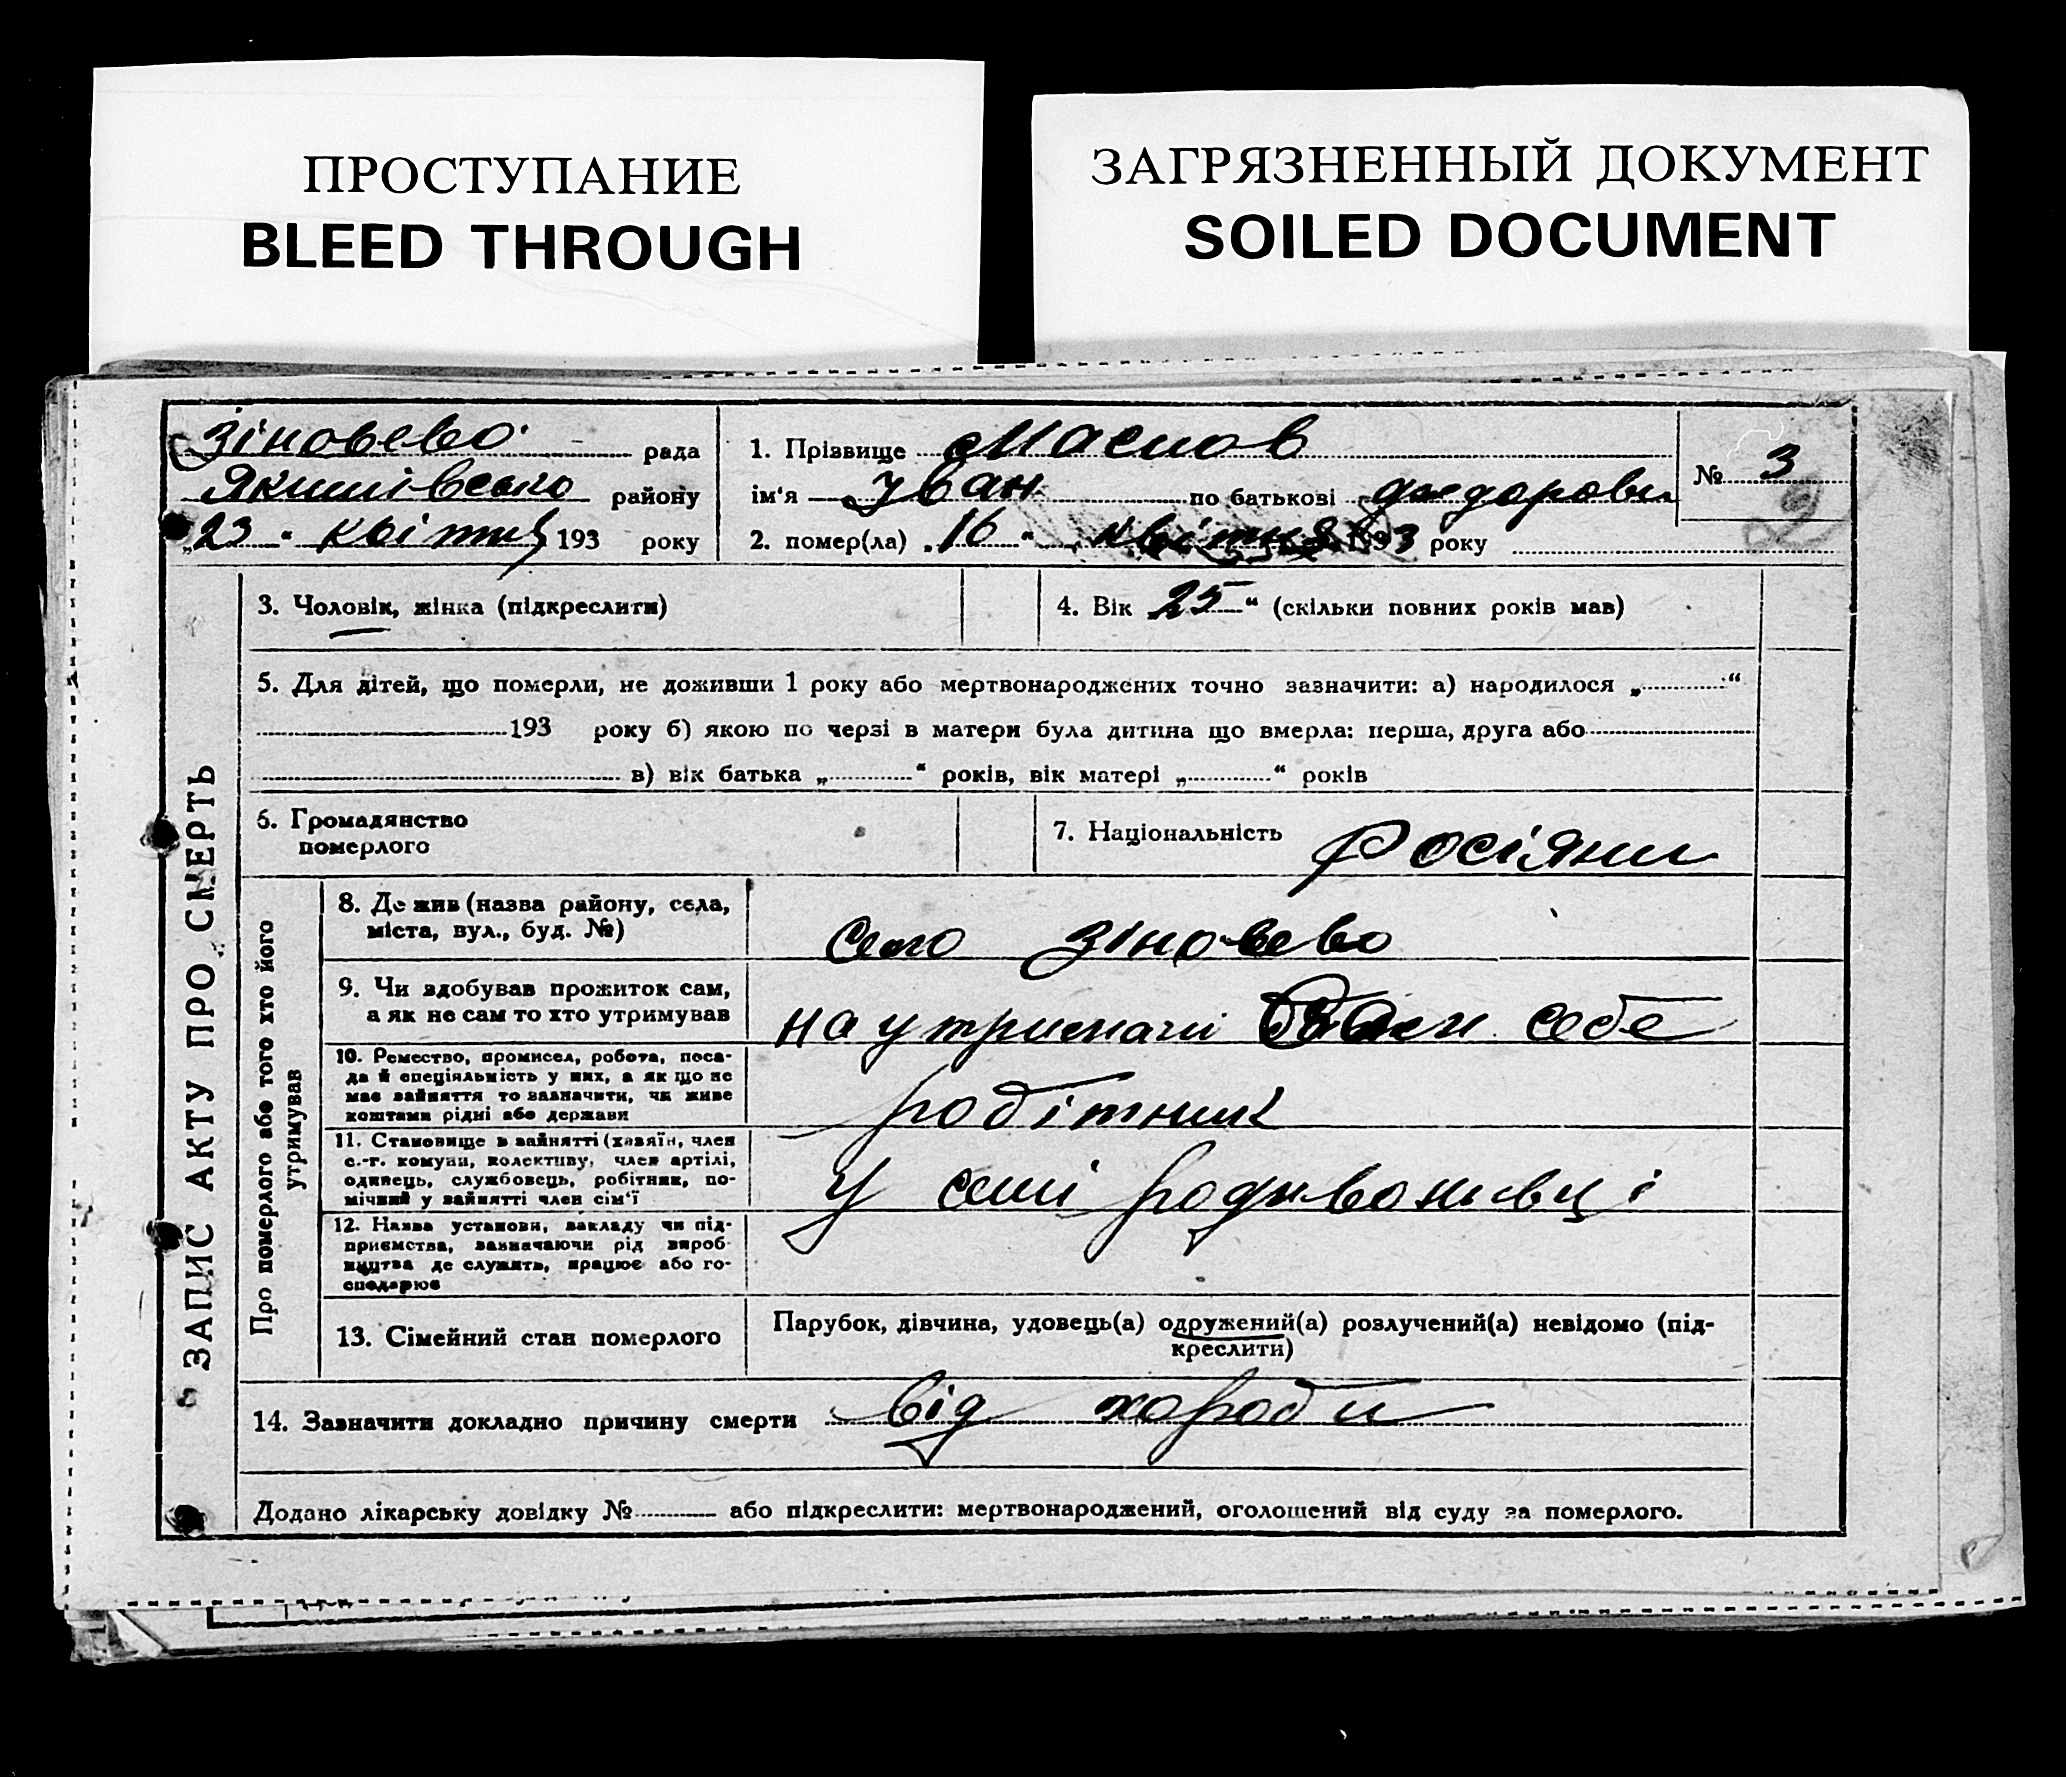 ПРОСТУПАНИЕ
BLEED THROUGH
ЗАГРЯЗНЕННЫЙ ДОКУМЕНТ
SOILED DOCUMENT
Зіновево рада
району
„23“ квітня 193 року
1. Прізвище Маслов
ім‘я Іван по батькові
2. помер(ла) „16“ квітня 1933 року
№ 3
ЗАПИС АКТУ ПРО СМЕРТЬ
3. Чоловік, жінка (підкреслити)
4. Вік 25“ (скільки повних років мав)
5. Для дітей, що померли, не доживши 1 року або мертвонароджених точно зазначити: а) народилося „ “
193 року б) якою по черзі в матери була дитина що вмерла: перша, друга або
в) вік батька „ “ років, вік матері „ “ років
6. Громадянство
померлого
7. Національність Росіяни
Про померлого або того хто його
утримував
8. Де жив (назва району, села,
міста, вул., буд. №)
село Зіновево
9. Чи здобував прожиток сам,
а як не сам то хто утримував
на утримані себе
10. Ремество, промисел, робота, поса-
да й спеціяльність у них, а як що не
має зайняття то зазначити, чи живе
коштами рідні або держави
робітник
11. Становище в зайнятті (хазяїн, член
с.-г. комуни, колективу, член артілі,
одинець, службовець, робітник, по-
мічний у зайнятті член сім‘ї
у
12. Назва установи, закладу чи під-
приємства, зазначаючи рід вироб-
ництва де служить, працює або го-
сподарює
13. Сімейний стан померлого
Парубок, дівчина, удовець(а) одружений(а) розлучений(а) невідомо (під-
креслити)
14. Зазначити докладно причину смерти від хороби
Додано лікарську довідку № або підкреслити: мертвонароджений, оголошений від суду за померлого.